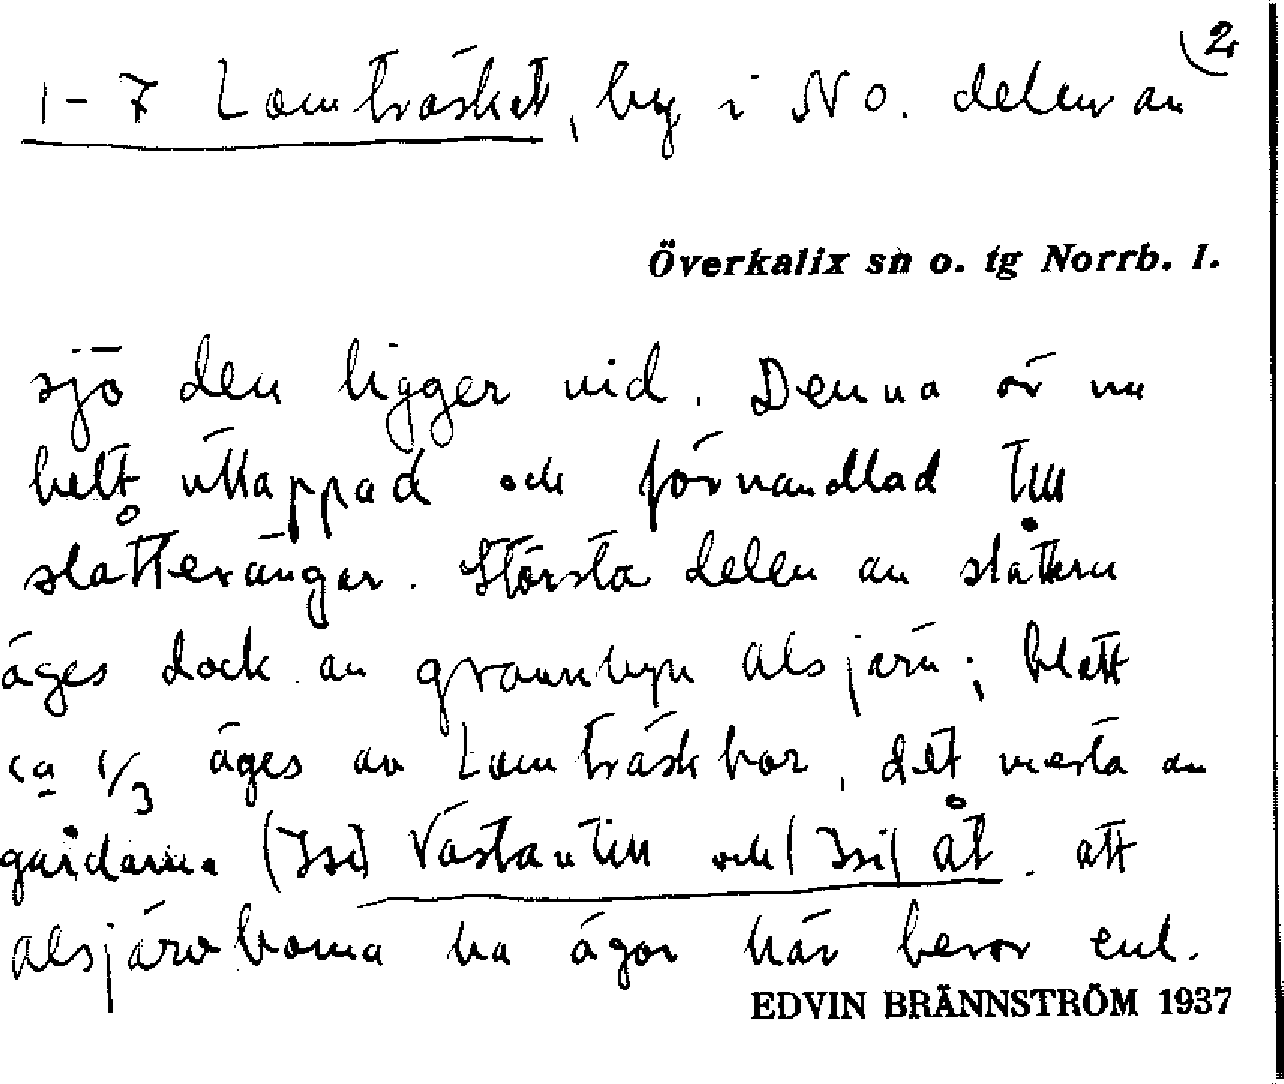 2
1-7 Lomträsket, by i NO. delen av
Överkalix sn o. tg Norrb. l.
sjö den ligger vid. Denna är nu
helt uttappad och förvandlad till
slåtterängar. Största delen av slåttern
äges dock av grannbyn Alsjärv; blott
ca 1/3 äges av Lomträskbor, det mesta av
gårdarna (Isi) Västantill och (Isi) åt. Att
Alsjärvborna ha ägor här beror enl.
EDVIN BRÄNNSTRÖM 1937